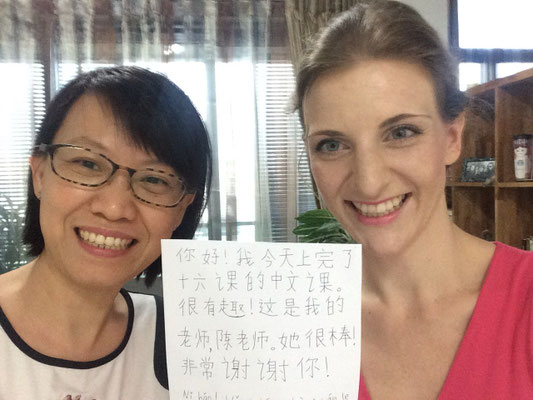 你好！我今天上完了
十六课的中文课。
很有趣！这是我的
老师,陈老师。她很棒!
非常谢谢你！
Nǐ hǎo!